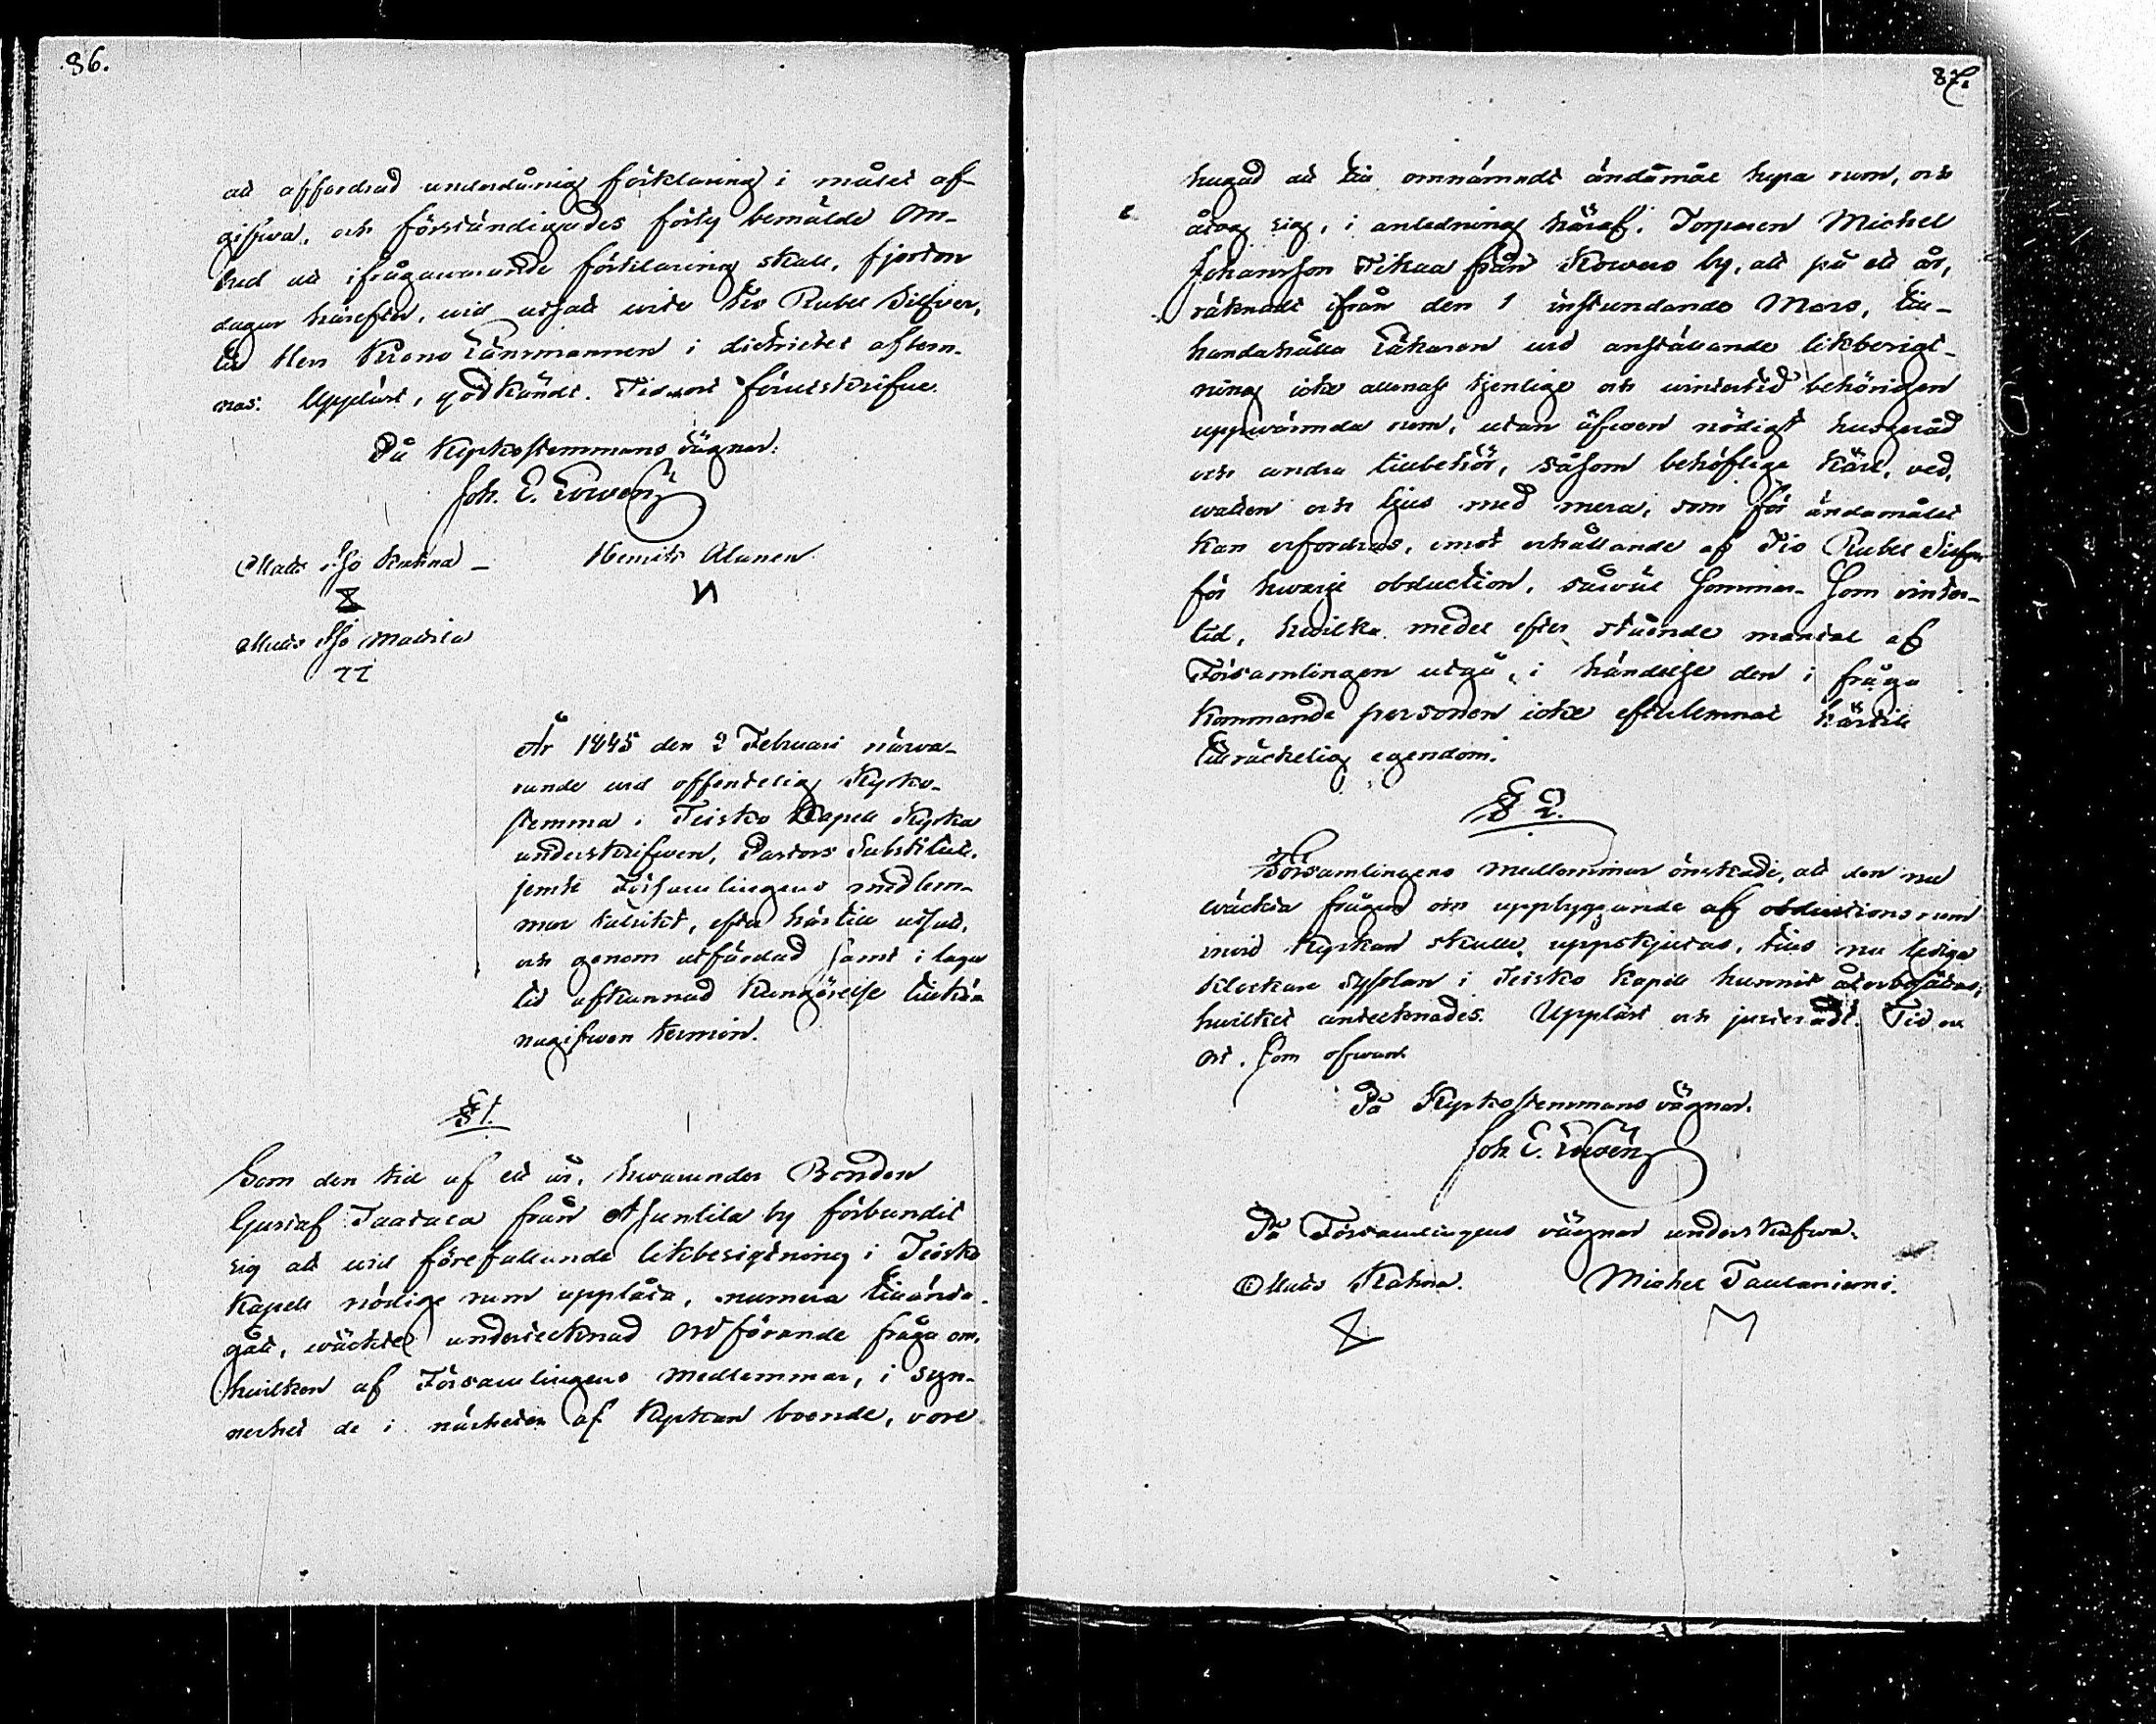 86.
att affordrad underdånig förklaring i målet af-
gifwa, och förständigades förty bemälde Om-
bud att ifrågawarande förklaring skall, fjorton
dagar härefter, wid utsatt wite tio Rubel Silfwer,
till Herr Krono Länsmannen i districtet aflem-
nas. Uppläst, godkändt. Tid och ort förutskrifne.
På Kyrkostemmans vägnar:
Joh. E. Lowén
Matts Kahna
Henrik Alanen
Matts Mattila
År 1845 den 2 Februari närwa-
rande wid offentelig Kyrko-
stemma i Teisko Kapell Kyrka
underskrifwen, Pastors Substitut,
jemte Församlingens medlem-
mar talrikt, efter härtill utsatt,
och genom utfärdad samt i laga
tid afkunnad Kungörelse tillkän-
nagifwen termin.
§ 1.
Som den tid af ett år, hwarunder Bonden
Gustaf Taatala från Asuntila by förbundit
sig att wid förefallande likbesigtning i Teisko
Kapell nödige rum upplåta, numera tillända-
gått, wäckte undertecknad Ordförande fråga om,
hwilken af Församlingens medlemmar, i syn-
nerhet de i närheten af Kyrkan boende, vore
87.
hugad att till omnämndt ändamål hyra rum, och
åtog sig, i anledning häraf, Torparen Michel
Johansson Tikaa från Kowero by, att på ett år,
räknadt ifrån den 1 instundande Mars, till-
handahålla Läkaren wid anställande likbesigt-
ning icke allenast tjenlige och wintertid behörigen
uppwärmda rum, utan äfwen nödigt husgeråd
och andra tillbehör, såsom behöflige kärl, ved,
watten och ljus med mera, som för ändamålet
kan erfordras, emot erhållande af Tio Rubel Silfwer
för hwarje obduction, såwäl Sommar- som vinter-
tid, hwilka medel efter stående mantal af
Församlingen utgå, i händelse den i fråga
kommande personen icke efterlemnat härtill
tillräckelig egendom.
§ 2.
Församlingens medlemmar önskade, att den nu
wäckta frågan om uppbyggande af obductionsrum
inwid Kyrkan skulle uppskjutas, tills nu lediga
Klockare sysslan i Teisko Kapell hunnit återbesättas,
hwilket antecknades. Uppläst och justeradt. Tid och
Ort, som ofwan.
På Kyrkostemmans vägnar.
Joh. E. Lowén
På Församlingens vägnar underskrifwa.
Matts Kahna.
Michel Taulaniemi.